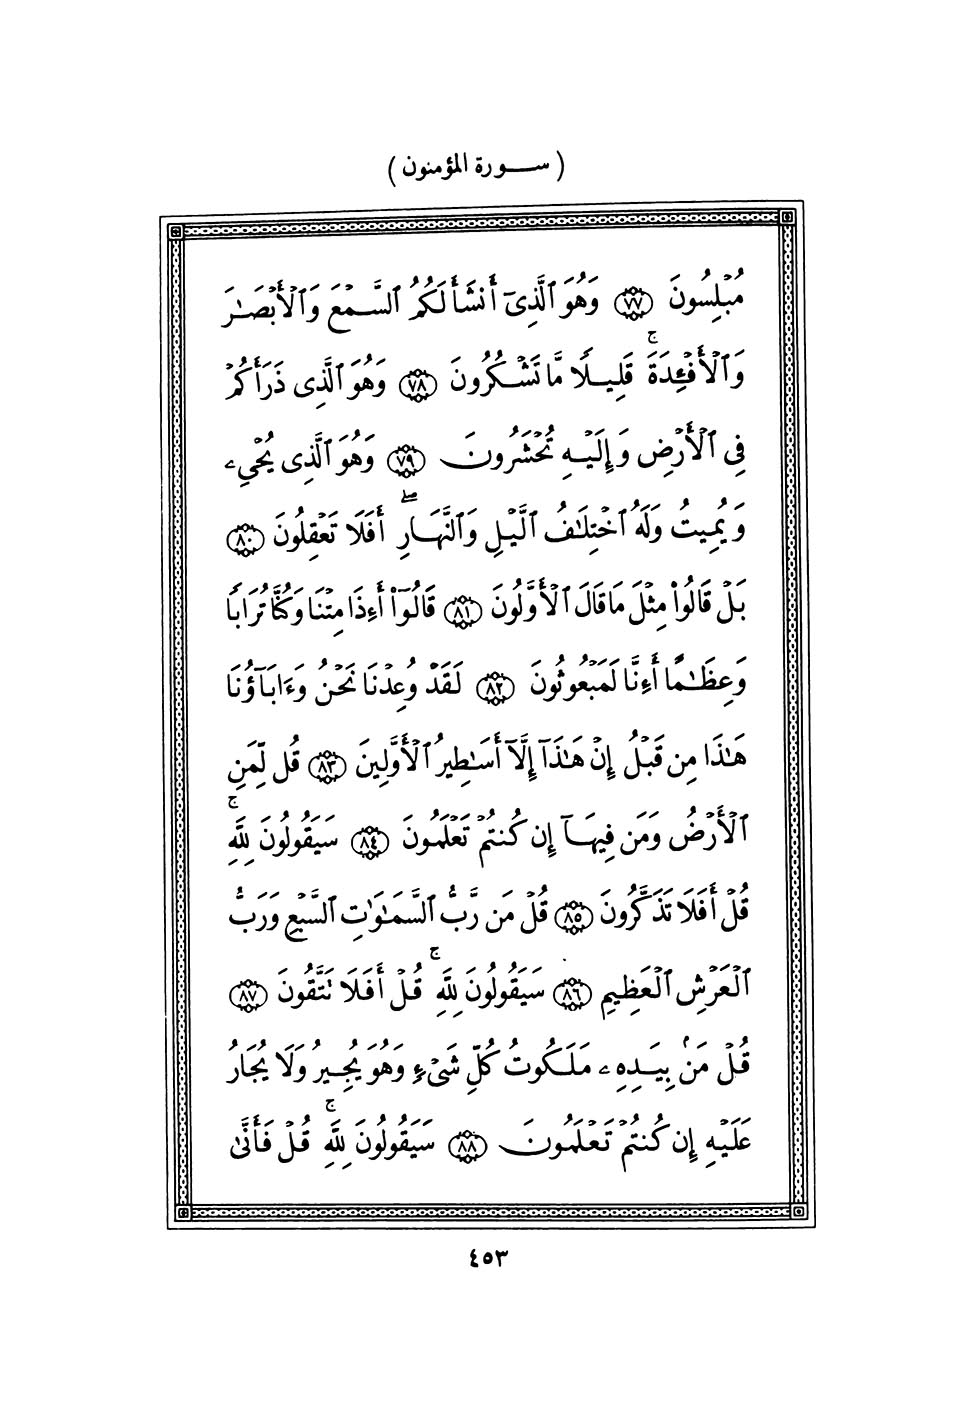 ( ســورة المؤمنون )
مُبْلِسُونَ ﴿٧٧﴾ وَهُوَ ٱلَّذِىٓ أَنشَأَ لَكُمُ ٱلسَّمْعَ وَٱلْأَبْصَـٰرَ
وَٱلْأَفْـِٔدَةَ ۚ قَلِيلًا مَّا تَشْكُرُونَ ﴿٧٨﴾ وَهُوَ ٱلَّذِى ذَرَأَكُمْ
فِى ٱلْأَرْضِ وَإِلَيْهِ تُحْشَرُونَ ﴿٧٩﴾ وَهُوَ ٱلَّذِى يُحْىِۦ
وَيُمِيتُ وَلَهُ ٱخْتِلَـٰفُ ٱلَّيْلِ وَٱلنَّهَارِ ۖ أَفَلَا تَعْقِلُونَ ﴿٨٠﴾
بَلْ قَالُوا۟ مِثْلَ مَا قَالَ ٱلْأَوَّلُونَ ﴿٨١﴾ قَالُوٓا۟ أَءِذَا مِتْنَا وَكُنَّا تُرَابًا
وَعِظَـٰمًا أَءِنَّا لَمَبْعُوثُونَ ﴿٨٢﴾ لَقَدْ وُعِدْنَا نَحْنُ وَءَابَآؤُنَا
هَـٰذَا مِن قَبْلُ إِنْ هَـٰذَآ إِلَّآ أَسَـٰطِيرُ ٱلْأَوَّلِينَ ﴿٨٣﴾ قُل لِّمَنِ
ٱلْأَرْضُ وَمَن فِيهَآ إِن كُنتُمْ تَعْلَمُونَ ﴿٨٤﴾ سَيَقُولُونَ لِلَّهِ ۚ
قُلْ أَفَلَا تَذَكَّرُونَ ﴿٨٥﴾ قُلْ مَن رَّبُّ ٱلسَّمَـٰوَٰتِ ٱلسَّبْعِ وَرَبُّ
ٱلْعَرْشِ ٱلْعَظِيمِ ﴿٨٦﴾ سَيَقُولُونَ لِلَّهِ ۚ قُلْ أَفَلَا تَتَّقُونَ ﴿٨٧﴾
قُلْ مَنۢ بِيَدِهِۦ مَلَكُوتُ كُلِّ شَىْءٍ وَهُوَ يُجِيرُ وَلَا يُجَارُ
عَلَيْهِ إِن كُنتُمْ تَعْلَمُونَ ﴿٨٨﴾ سَيَقُولُونَ لِلَّهِ ۚ قُلْ فَأَنَّىٰ
٤٥٣